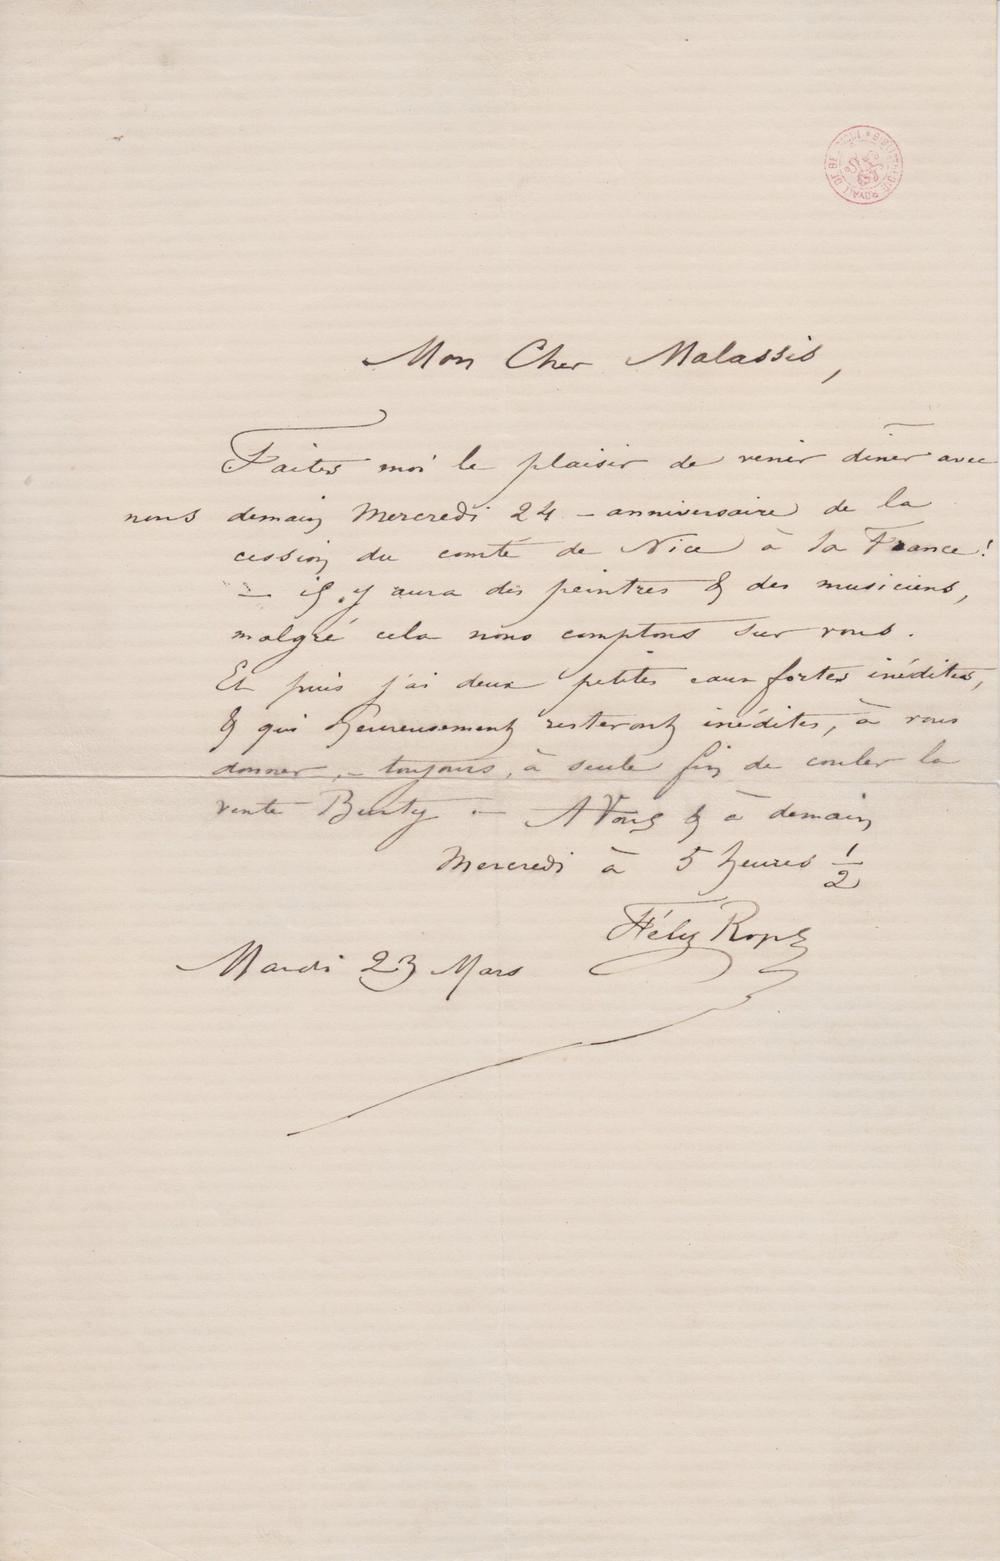 BIBLIOTHÈQUE ROYALE DE BELGIQUE
Mon Cher Malassis,
Faites moi le plaisir de venir dîner avec
nous demain Mercredi 24 – anniversaire de la
cession du comté de Nice à la France!
– il y aura des peintres & des musiciens,
malgré cela nous comptons sur vous.
Et puis j'ai deux petites eaux fortes inédites,
& qui heureusement resteront inédites, à vous
donner, – toujours, à seule fin de couler la
vente Burty. – A Vous & à demain
Mercredi à 5 heures 1/2
Félix Rops
Mardi 23 Mars